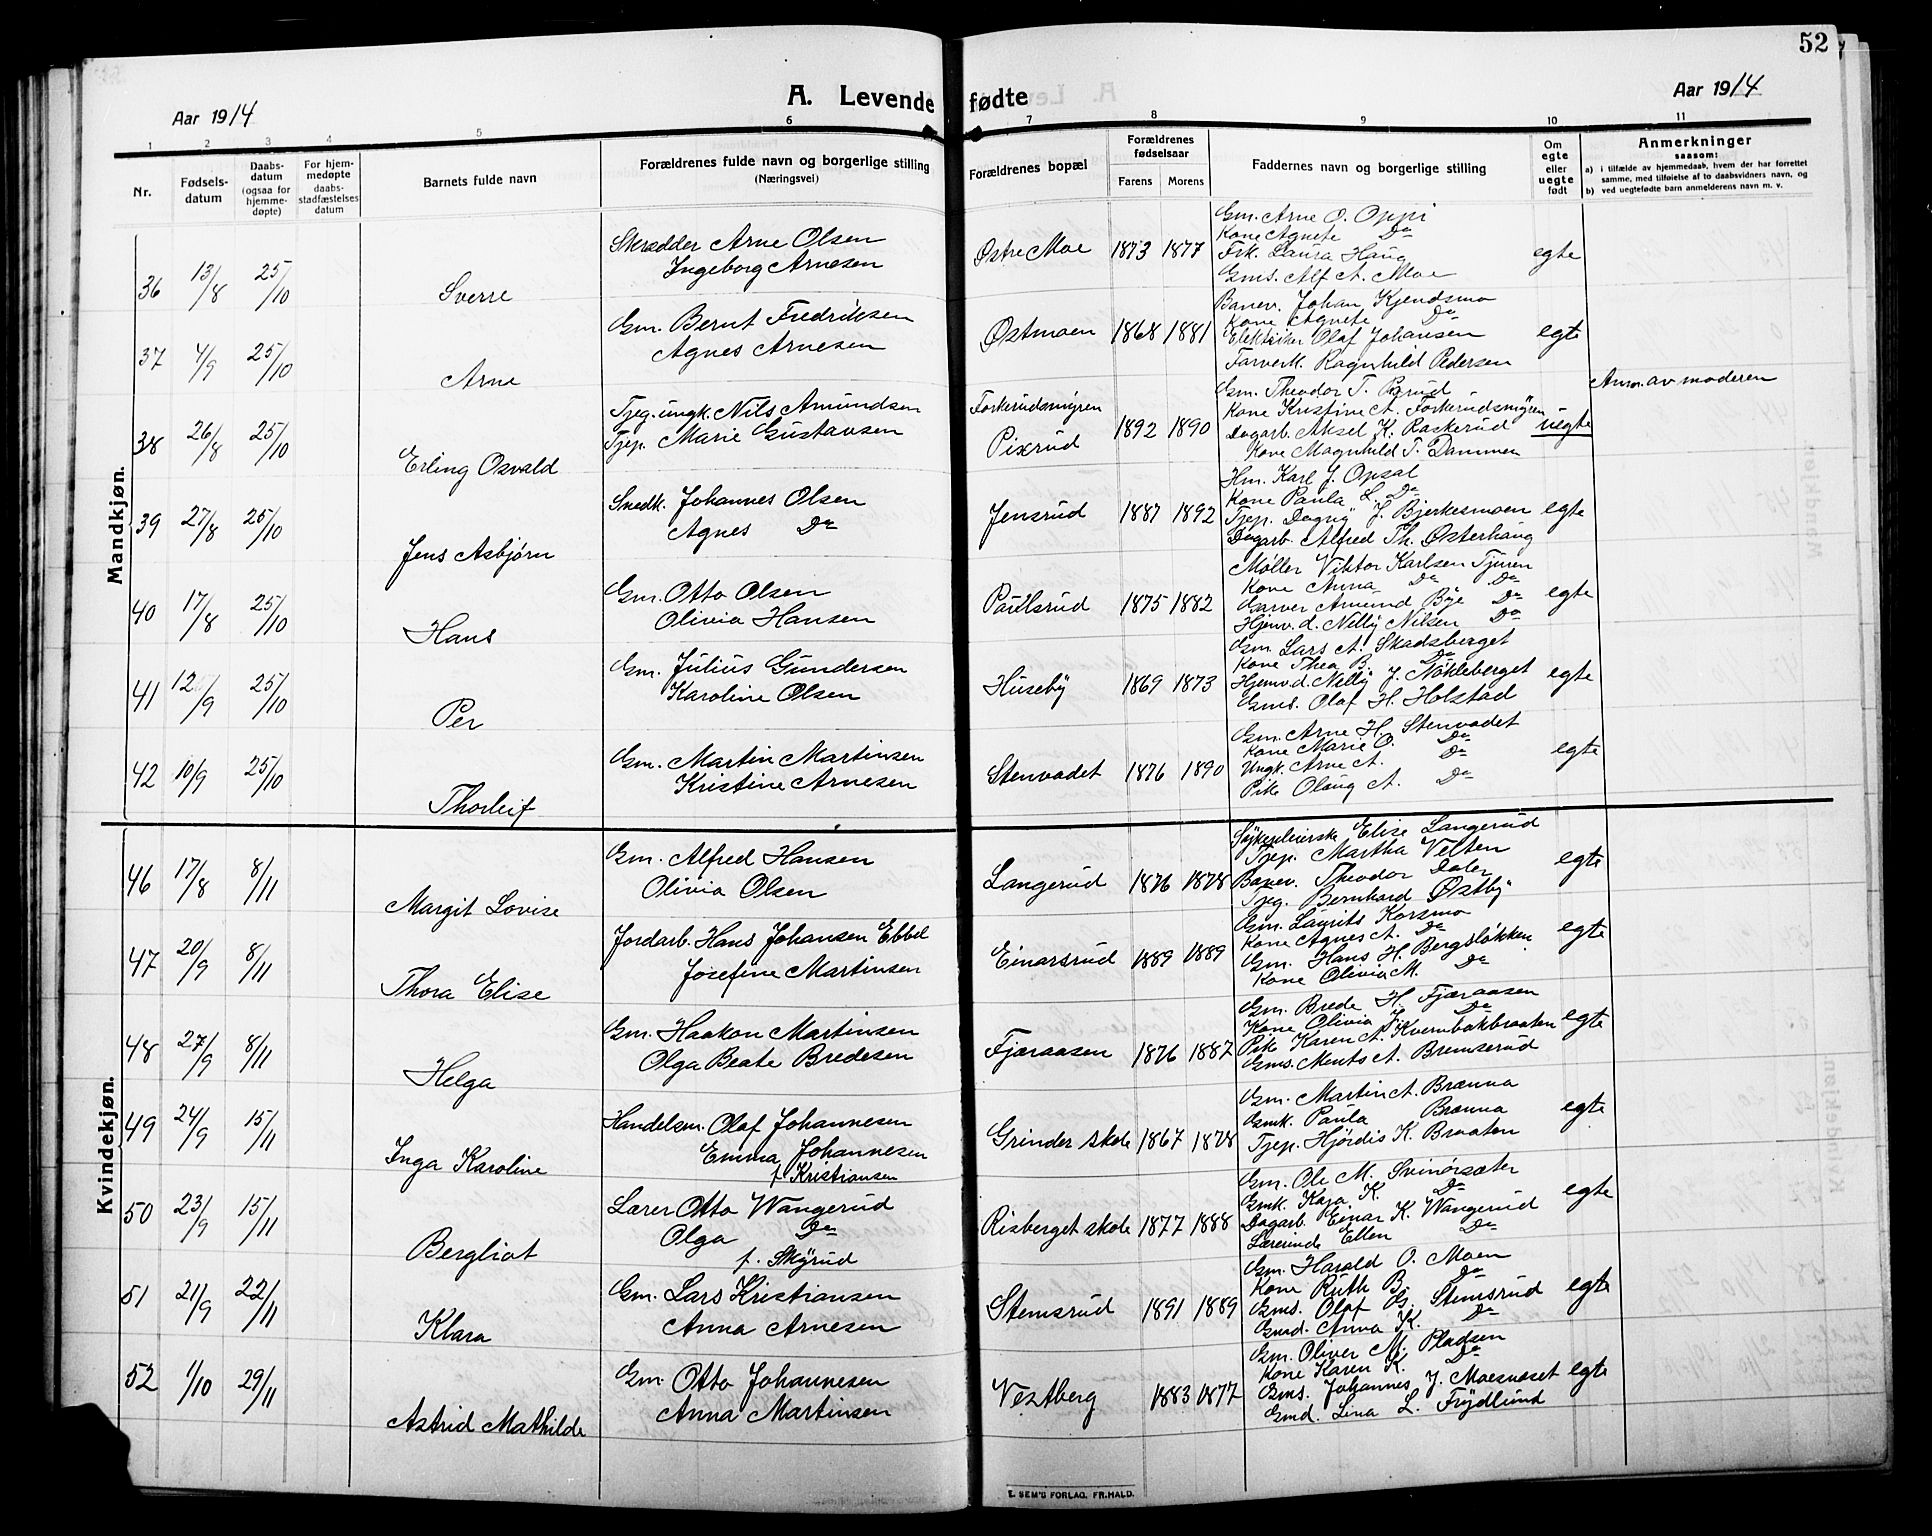 52
Aar 1914
A. Levende fødte
Aar 1914
1 2 3 4 5 6 7 8 9 10 11
Nr.
Fødsels-
datum
Daabs-
datum
(ogsaa for
hjemme-
døpte)
For hjem-
medøpte
daabs-
stadfæstelses
datum
Barnets fulde navn
Forældrenes fulde navn og borgerlige stilling
(Næringsvei)
Forældrenes bopæl
Forældrenes
fødselsaar
Farens Morens
Faddernes navn og borgerlige stilling
Om
egte
eller
uegte
født
Anmerkninger
saasom:
a) i tilfælde av hjemmedaab, hvem der har forrettet
samme, med tilføielse af to daabsvidners navn, og
b) ved uegtefødte barn anmelderens navn m. v.
Mandkjøn.
36 13/8 25/10 Sverre
Skrædder Arne Olsen
Ingeborg Arnesen
Østre Moe 1873 1877
Gm. Arne O. Oppi
Kone Agnete Do
Frk. Laura Haug
Gms. Alf A. Moe
egte
37 4/9 25/10 Arne
Gm. Bernt Fredriksen
Agnes Arnesen
Østmoen 1868 1881
Banev. Johan Kjendsmo
Kone Agnete Do
Elektriker Olaf Johansen
Farverk. Ragnhild Pedersen
egte
38 26/8 25/10 Erling Osvald
Tjeg. ungk. Nils Amundsen
Tjep. Marie Gustavsen
Forkerudsmyren
Pixrud
1892 1890
Gm. Theodor T. Pixrud
Kone Kristine A. Forkerudsmyren
Dagarb. Aksel K. Raskerud
Kone Magnhild T. Dammen
uegte
Anm. av moderen
39 27/8 25/10 Jens Asbjørn
Snedk. Johannes Olsen
Agnes Do
Jensrud 1887 1892
Hm. Karl J. Opsal
Kone Paula L. Do
Tjep. Dagny J. Bjerkesmoen
Dagarb. Alfred Th. Østerhaug
egte
40 17/8 25/10 Hans
Gm. Otto Olsen
Olivia Hansen
Paulsrud 1875 1882
Møller Viktor Karlsen Tjuren
Kone Anna Do Do
Garver Amund Bye Do
Hjemv. d. Nelly Nilsen Do
egte
41 12/9 25/10 Per
Gm. Julius Gundersen
Karoline Olsen
Huseby 1869 1873
Gm. Lars A. Skadsberget
Kone Thea B. Do
Hjemv. d. Nelly J. Nökleberget
Gms. Olaf H. Holstad
egte
42 10/9 25/10 Thorleif
Gm. Martin Martinsen
Kristine Arnesen
Stenvadet 1876 1890
Gm. Arne H. Stenvadet
Kone Marie O. Do
Ungk. Arne A. Do
Pike Olaug A. Do
egte
Kvindekjøn.
46 17/8 8/11 Margit Lovise
Gm. Alfred Hansen
Olivia Olsen
Langerud 1876 1878
Sykepleierske Elise Langerud
Tjep. Martha Velten
Banev. Theodor Daler
Tjeg. Bernhard Østby
egte
47 20/9 8/11 Thora Elise
Jordarb. Hans Johansen Ebbel
Josefine Martinsen
Einarsrud 1889 1889
Gm. Laurits Korsmo
Kone Agnes A. Do
Gm. Hans H. Bergsløkken
Kone Olivia M. Do
egte
48 27/9 8/11 Helga
Gm. Haakon Martinsen
Olga Beate Bredesen
Fjæraasen 1876 1887
Gm. Brede H. Fjæraasen
Kone Olivia J. Do
Pike Karen A. Kvernbakbraaten
Gms. Ments A. Bremserud
egte
49 24/9 15/11 Inga Karoline
Handelsm. Olaf Johannesen
Emma Johannesen
f. Kristiansen
Grinder skole 1867 1878
Gm. Martin A. Brænna
Gmk. Paula Brænna
Tjep. Hjørdis K. Braaten
egte
50 23/9 15/11 Bergliot
Lærer Otto Wangerud
Olga Do
f. Skyrud
Risberget skole 1877 1888
Gm. Ole M. Svinörsæter
Gmk. Kaja K. Do
Dagarb. Einar K. Wangerud
Lærerinde Ellen Do
egte
51 21/9 22/11 Klara
Gm. Lars Kristiansen
Anna Arnesen
Stemsrud 1891 1889
Gm. Harald O. Moen
Kone Ruth B. Do
Gms. Olaf G. Stemsrud
Gmd. Anna K. Do
egte
52 1/10 29/11 Astrid Mathilde
Gm. Otto Johannesen
Anna Martinsen
Vestberg 1883 1877
Gm. Oliver M. Pladsen
Kone Karen K. Do
Gms. Johannes J. Moesnæset
Gmd. Lina L. Frydlund
egte
E. SEM'S FORLAG, FR.HALD.